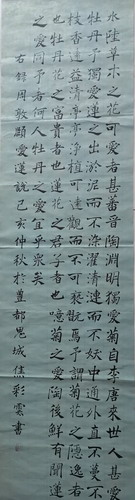 水陸草木之花可愛者甚蕃晉陶淵明獨愛菊自李唐來世人甚愛
牡丹予獨愛蓮之出淤泥而不染濯清漣而不妖中通外直不蔓不
枝香遠益清亭亭淨植可遠觀而不可褻翫焉予謂菊花之隱逸者
也牡丹花之富貴者也蓮花之君子者也噫菊之愛陶後鮮有聞蓮
之愛同予者何人牡丹之愛宜乎眾矣
右録周敦頤愛蓮説己亥仲秋於豐都鬼城焦彩雲書